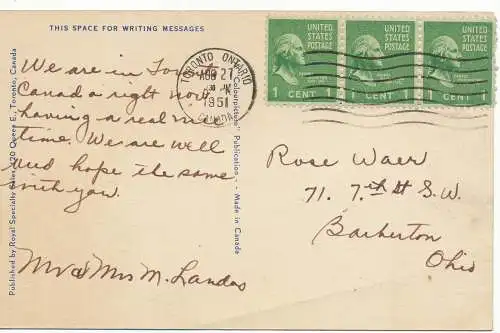 THIS SPACE FOR WRITING MESSAGES
We are in
Canada a right now
having a real
time. We are well
and hope the same
with you.
Mr & Mrs M. Landas
Published by Royal Specialty Sales, 420 Queen E., Toronto, Canada
"Colourpicture" Publication - Made in Canada
TORONTO ONTARIO
AUG 27
1951
CANADA
UNITED STATES POSTAGE
1 CENT 1
UNITED STATES POSTAGE
1 CENT 1
UNITED STATES POSTAGE
1 CENT 1
Rose Waer
71. 7th St S.W.
Barberton
Ohio